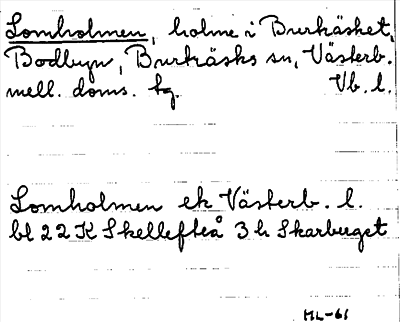 Lomholmen, holme i Burträsket,
Bodbyn, Burträsks sn, Västerb.
mell. doms. tg. Vb. l.
Lomholmen ek Västerb. l.
bl 22 K Skellefteå 3 h Skarberget
HL-61